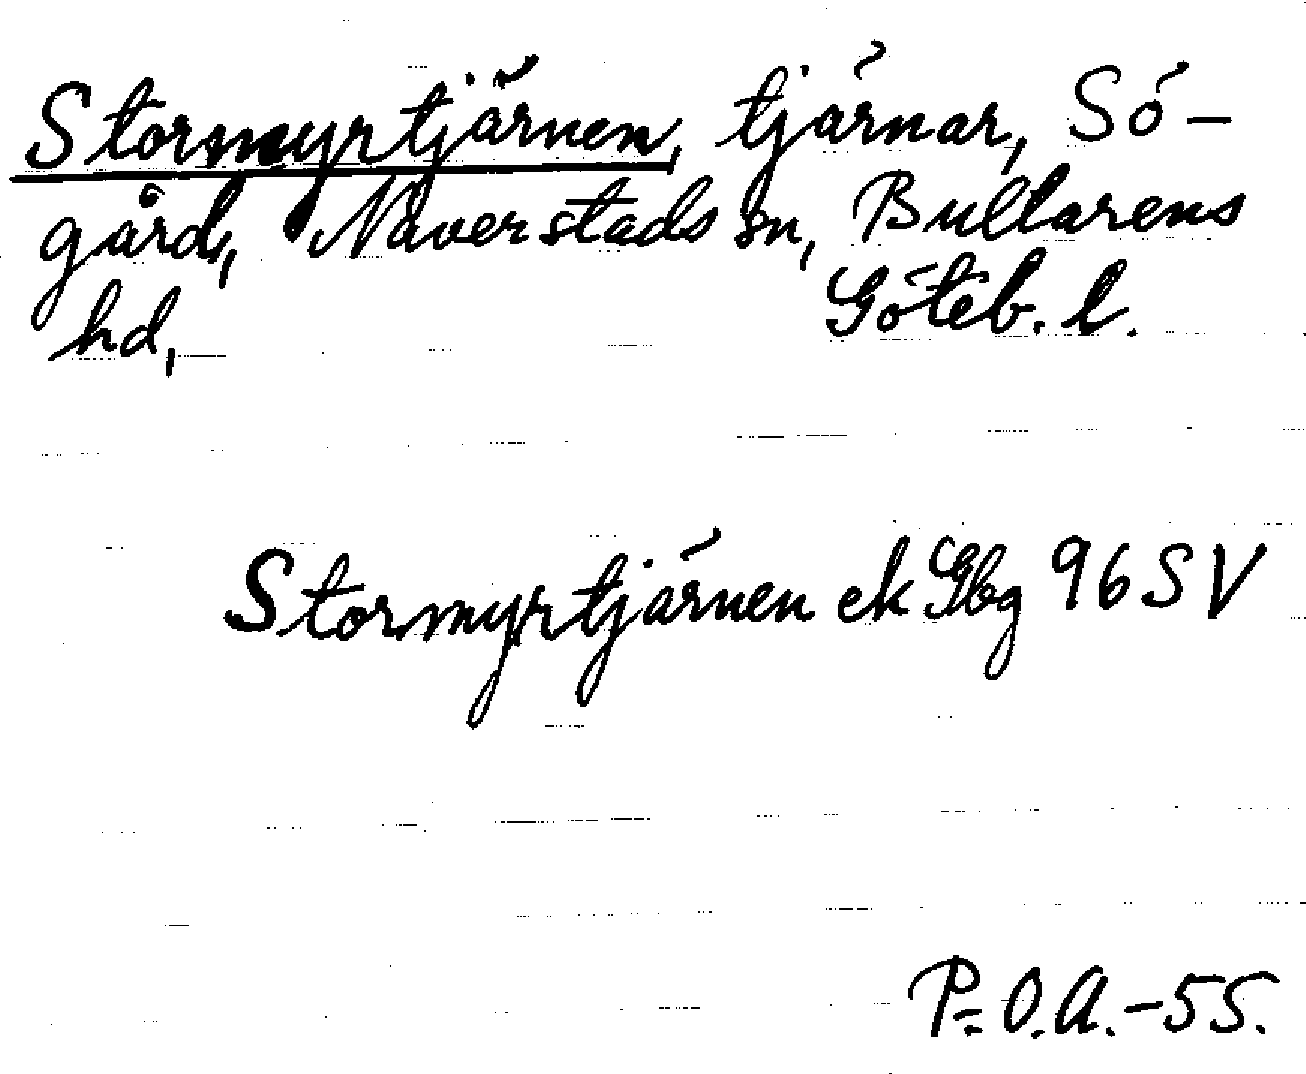 Stormyrtjärnen, tjärnar, Sö-
gård, Naverstads sn, Bullarens
hd, Göteb. l.
Stormyrtjärnen ek Gbg 96 SV
P=O.A.-55.